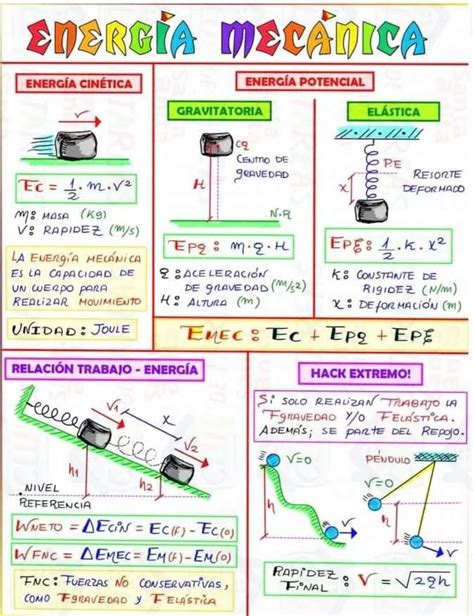 ENERGÍA MECÁNICA
ENERGÍA CINÉTICA
V
Ec = 1/2 · m · V²
m: MASA (Kg)
V: RAPIDEZ (m/s)
LA ENERGÍA MECÁNICA
ES LA CAPACIDAD DE
UN CUERPO PARA
REALIZAR MOVIMIENTO
UNIDAD: JOULE
ENERGÍA POTENCIAL
GRAVITATORIA
CG
CENTRO DE
GRAVEDAD
H
N.R
EPg: m · g · H
g: ACELERACIÓN
DE GRAVEDAD (m/s2)
H: ALTURA (m)
ELÁSTICA
P.E
X
RESORTE
DEFORMADO
EPE: 1/2 · K · X²
K: CONSTANTE DE
RIGIDEZ (N/m)
X: DEFORMACIÓN (m)
EMEC: EC + EPg + EPE
RELACIÓN TRABAJO - ENERGÍA
V1
X
V2
h1
h2
NIVEL
REFERENCIA
WNETO = ΔECIN = EC(F) - EC(0)
WFNC = ΔEMEC = EM(F) - EM(0)
FNC: FUERZAS NO CONSERVATIVAS,
COMO FGRAVEDAD Y FELÁSTICA
HACK EXTREMO!
S: SOLO REALIZAN TRABAJO LA
FGRAVEDAD Y/O FELÁSTICA.
ADEMÁS; SE PARTE DEL REPOJO.
V=0
h
V
PÉNDULO
V=0
h
V
RAPIDEZ
FINAL: V = √2gh